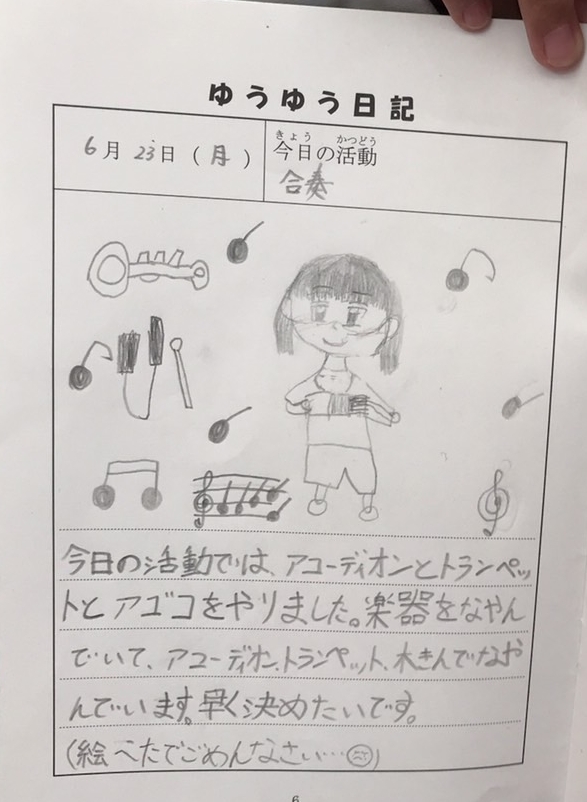 ゆうゆう日記
6月23日(月)
きょう かつどう
今日の活動
合奏
今日の活動では、アコーディオンとトランペッ
トとアゴゴをやりました。楽器をなやん
でいて、アコーディオン、トランペット、木きんでなや
んでいます。早く決めたいです。
(絵へたでごめんなさい…)
6